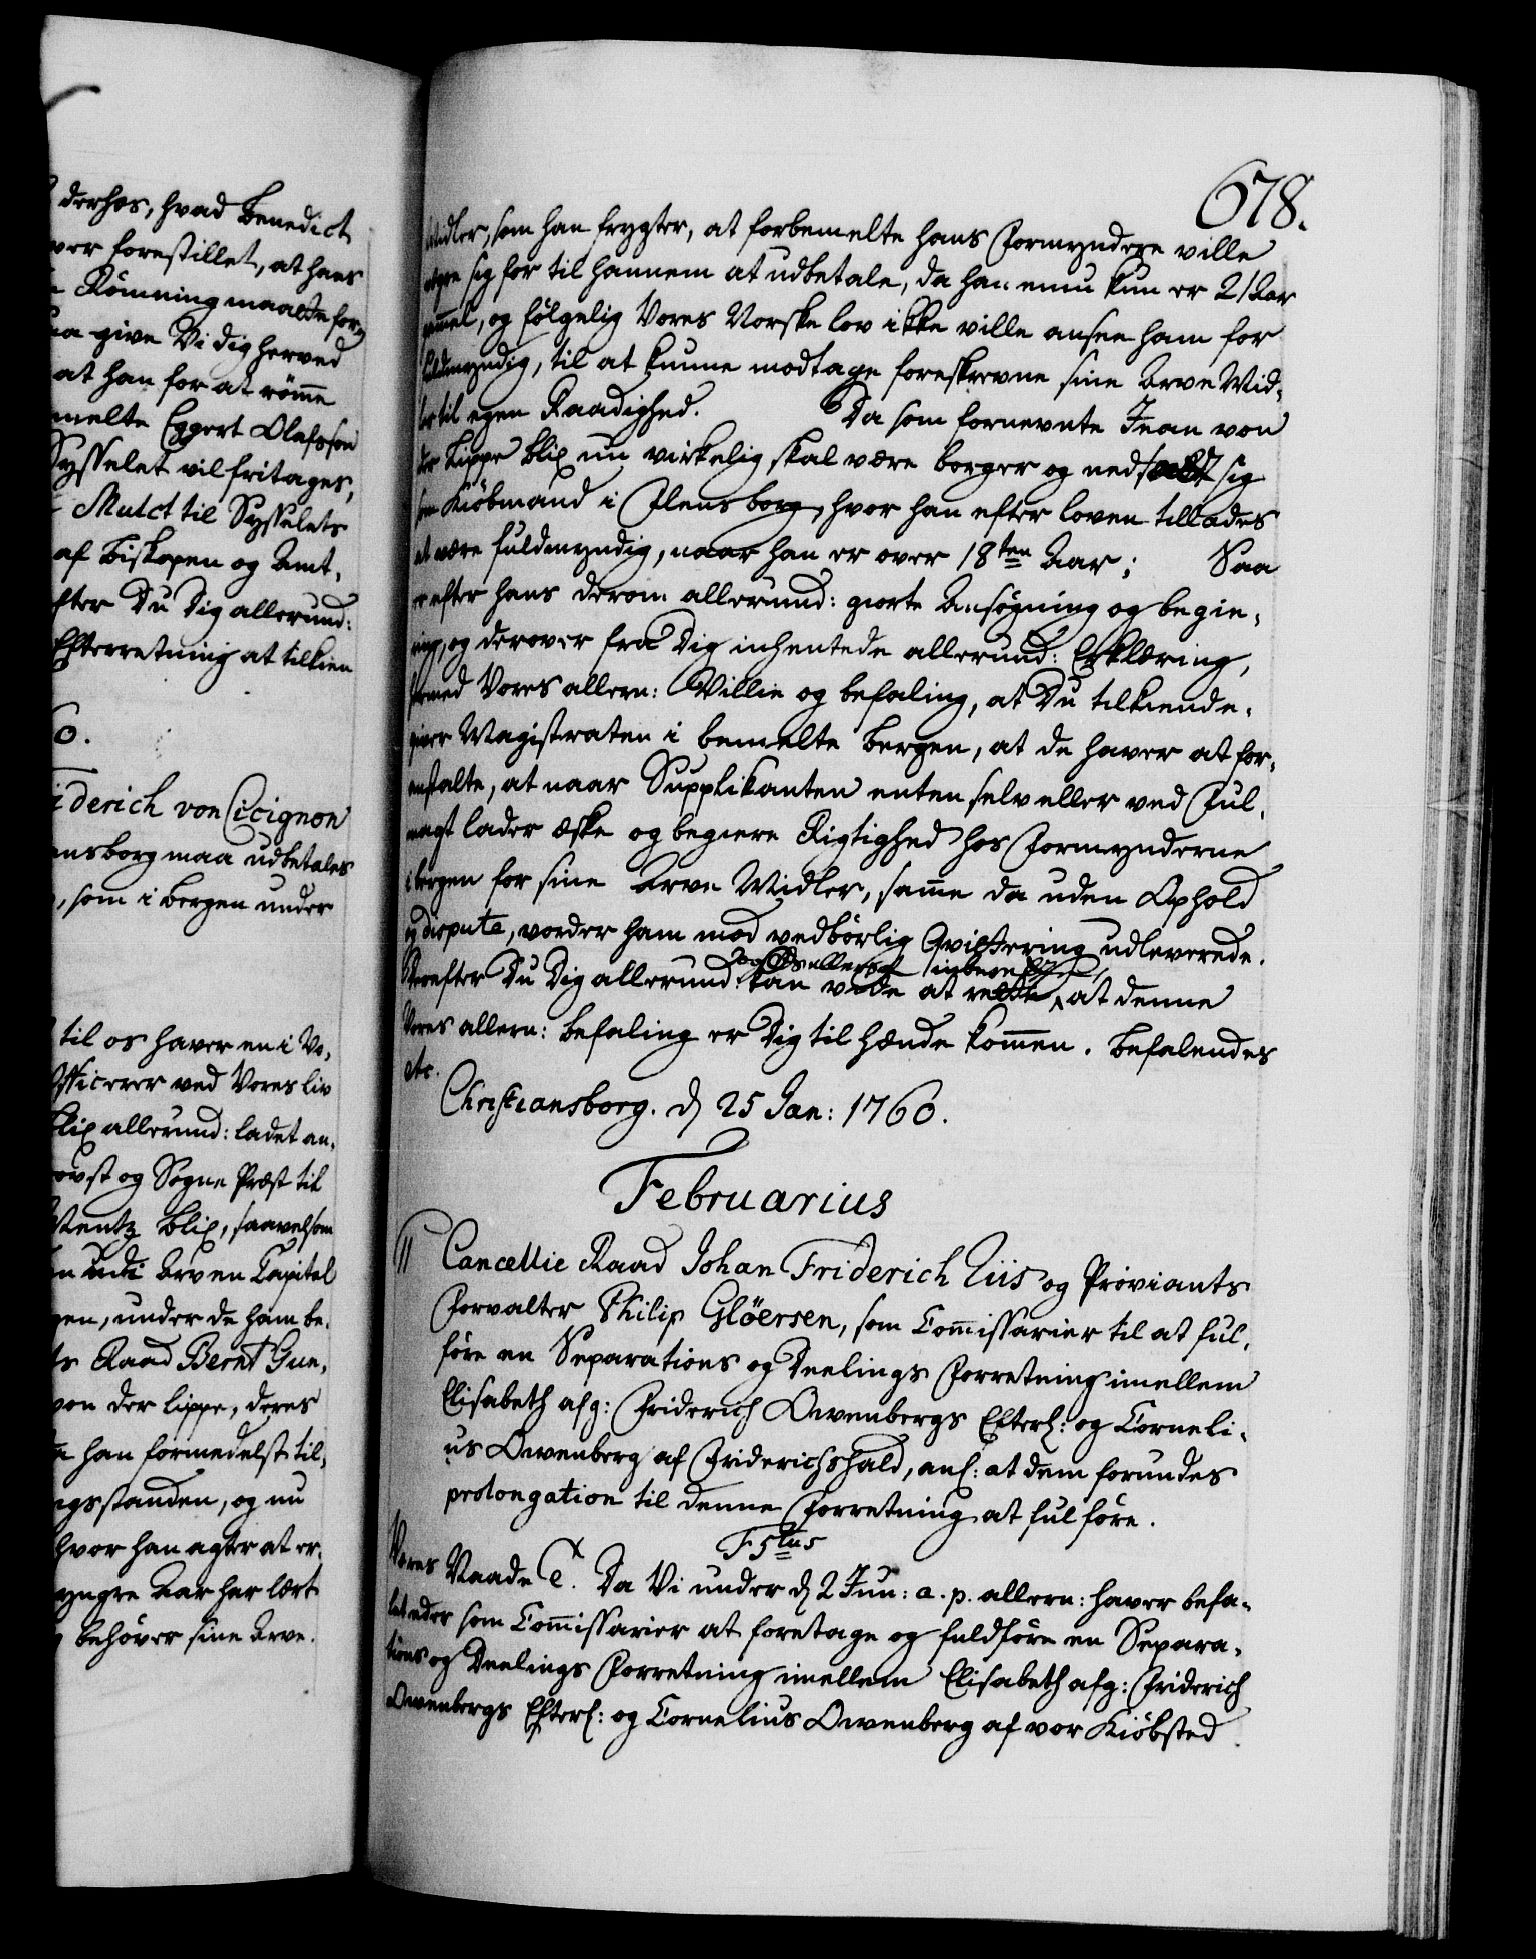 derhos, hvad Benedict
ver forestillet, at hans
Römning maatte for,
give Vi dig herved
at han for at römme
melte Eggert Olafssøn
Sysselet vil fritages,
Mulct til Sysselets
af Biskopen og Amt,
fter Du Dig allerund:
Efterretning at tilkien
0.
iderich von Cicignon
ensborg maa udbetales
, som i Bergen under
til os haver en i Vo,
Officerer ved Vores Liv
Blix allerund: ladet an,
ovst og Sogne Præst til
Mentz Blix, saavelsom
n udi Arven Capital
gen, under de ham be,
ts Raad Bernt Gun,
von der Lippe, deres
han formedelst til,
ngsstanden, og nu
hvor han agter at er,
yngre Aar har lært
behöver sine Arve.
678.
Midler, som han frygter, at forbemelte hans Formyndere ville
vægre sig for til hannem at udbetale, da han ennu kun er 21 Aar
gammel, og fölgelig Vores Norske Lov ikke ville ansee ham for
fuldmyndig, til at kunne modtage foreskrevne sine Arve Mid,
ler til egen Raadighed. Da som fornevnte Jean von
der Lippe Blix nu virkelig skal være borger og nedsadt sig
som Kiöbmand i Flensborg, hvor han efter Loven tillades
at være fuldmyndig, naar han er over 18ten Aar; Saa
er efter hans derom allerund: giorte Ansögning og begie,
ring, og derover fra Dig inhentede allerund: Erklæring,
hermed Vores allern: Villie og befaling, at Du tilkiende,
giver Magistraten i bemelte Bergen, at de haver at for,
anstalte, at naar Supplikanten enten selv eller ved Ful,
magt lader æske og begiere Rigtighed hos Formynderne
i Bergen for sine Arve Midler, samme da uden Ophold
og dispute, vorder ham mod vedbörlig Qvittering udleverede.
og Os allerund: indberette,
Derefter Du Dig allerund: kan vide at rette, at denne
Vores allern: Befaling er Dig til hænde kommen. Befalendes
etc.
Christiansborg. d 25 Jan: 1760.
Februarius
11 Cancellie Raad Johan Friderich Liis og Proviants
Forvalter Philip Glöersen, som Commissarier til at ful,
före en Separations og Deelings Forretning imellem
Elisabeth afg: Friderich Owenbergs Efterl: og Corneli,
us Owenberg af Friderichshald, anl: at dem forundes
prolongation til denne Forretning at fulföre.
F 5tus
Vores Naade etc. Da Vi under d 2 Jun: a. p. allern: haver befa,
let eder som Commissarier at foretage og fuldföre en Separa,
tions og Deelings Forretning imellem Elisabeth afg: Friderich
Owenbergs Efterl: og Cornelius Owenberg af vor Kiöbsted